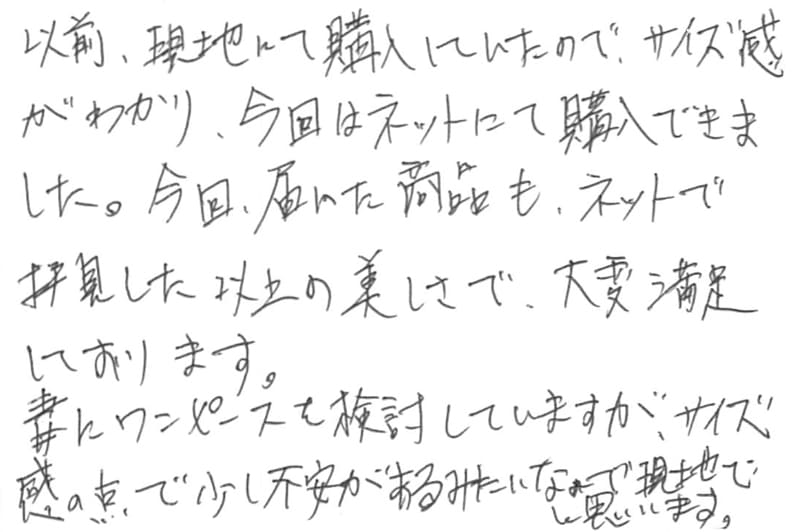 以前、現地にて購入していたので、サイズ感
がわかり、今回はネットにて購入できま
した。今回、届いた商品も、ネットで
拝見した以上の美しさで、大変満足
しております。
妻にワンピースを検討していますが、サイズ
感の点で少し不安があるみたいなので現地で
と思います。